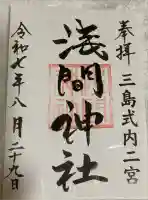 奉拝 三島式内二宮
浅間神社
令和七年八月二十九日